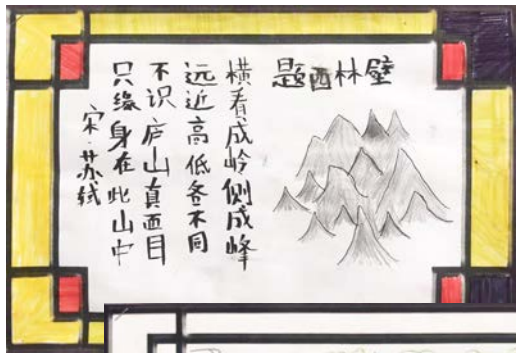 题西林壁
横看成岭侧成峰
远近高低各不同
不识庐山真面目
只缘身在此山中
宋·苏轼